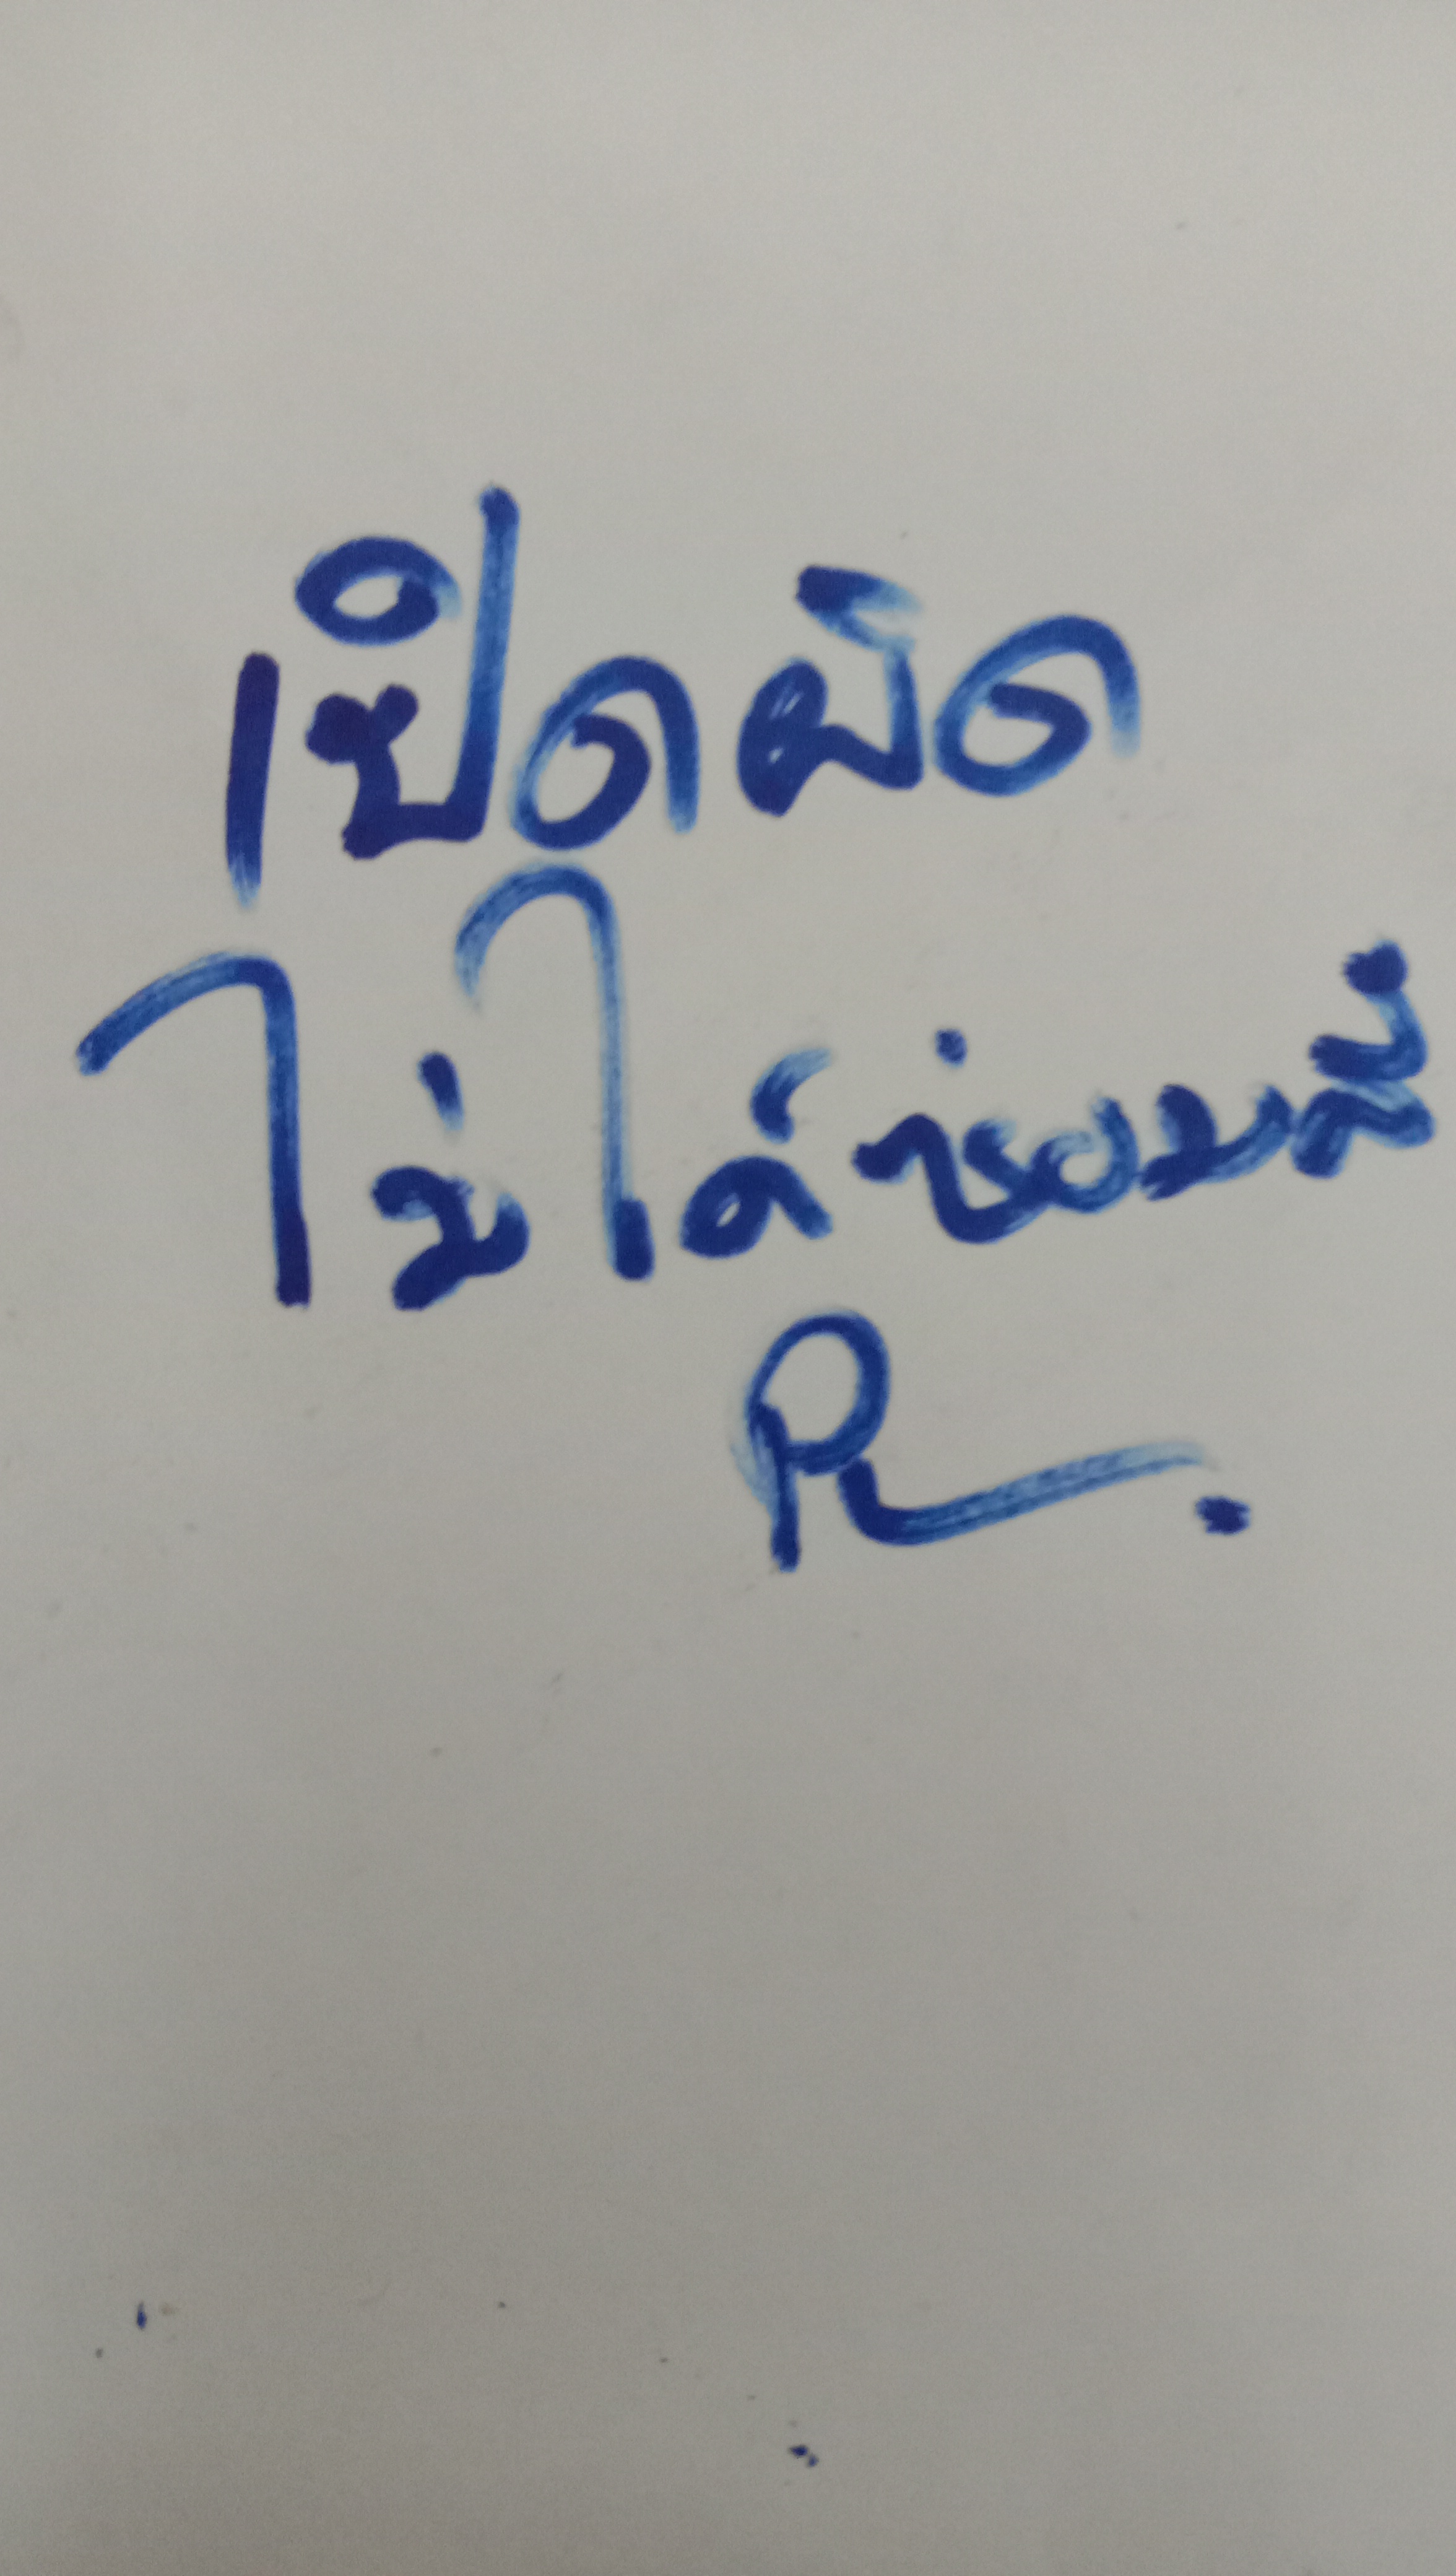 เปิดผิด
ไม่ได้ซ่อมสี
R.